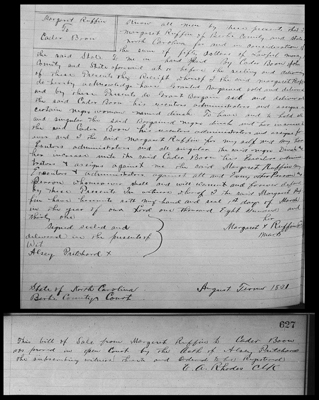 Margaret Ruffin
To
Cader Boon
Know all men by these presents that I
Margaret Ruffin of Bertie County and State
North Carolina for and in consideration of
the sum of fifty dollars of lawful money
the said State to me in hand paid by Cader Boon of the
County and State foresaid at or before the sealing and delivery
of these Presents the Receipt whereof I the said Margaret Ruffin
do hereby acknowledge have Granted Bargained sold and delivered
and by these Presents do Grant Bargain sell and deliver
the said Cader Boon his executors administrators and assigns
certain negro woman named To have and to hold
and singular the said Bargained negro unto
the said Cader Boon his executors administrators and assigns for
ever and I the said Margaret Ruffin for my self and my
Executors administrators and all the said negro
unto the said Cader Boon his Executors
assigns against me the said Margaret Ruffin my
Executors & administrators against all and Every other Person &
Persons whomsoever shall and will warrant and forever defend
by these Presents In witness whereof I the said Margaret Ruf
fin have hereunto set my hand and seal 1st day of March
in the year of our Lord one thousand Eight Hundred and
thirty one
Signed sealed and
delivered in the presents of
Wit
Alsey Pritchard +
her
Margaret X Ruffin
mark
State of North Carolina
Bertie County Court
August Term 1831
627
This bill of Sale from Margaret Ruffin to Cader Boon
was proved in open Court by the oath of Alsey Pritchard
the subscribing witness thereto and Ordered to be Registered
E. A. Rhodes Clk